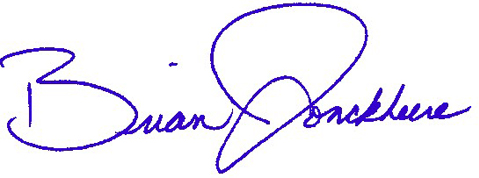 Brian Jonckheere